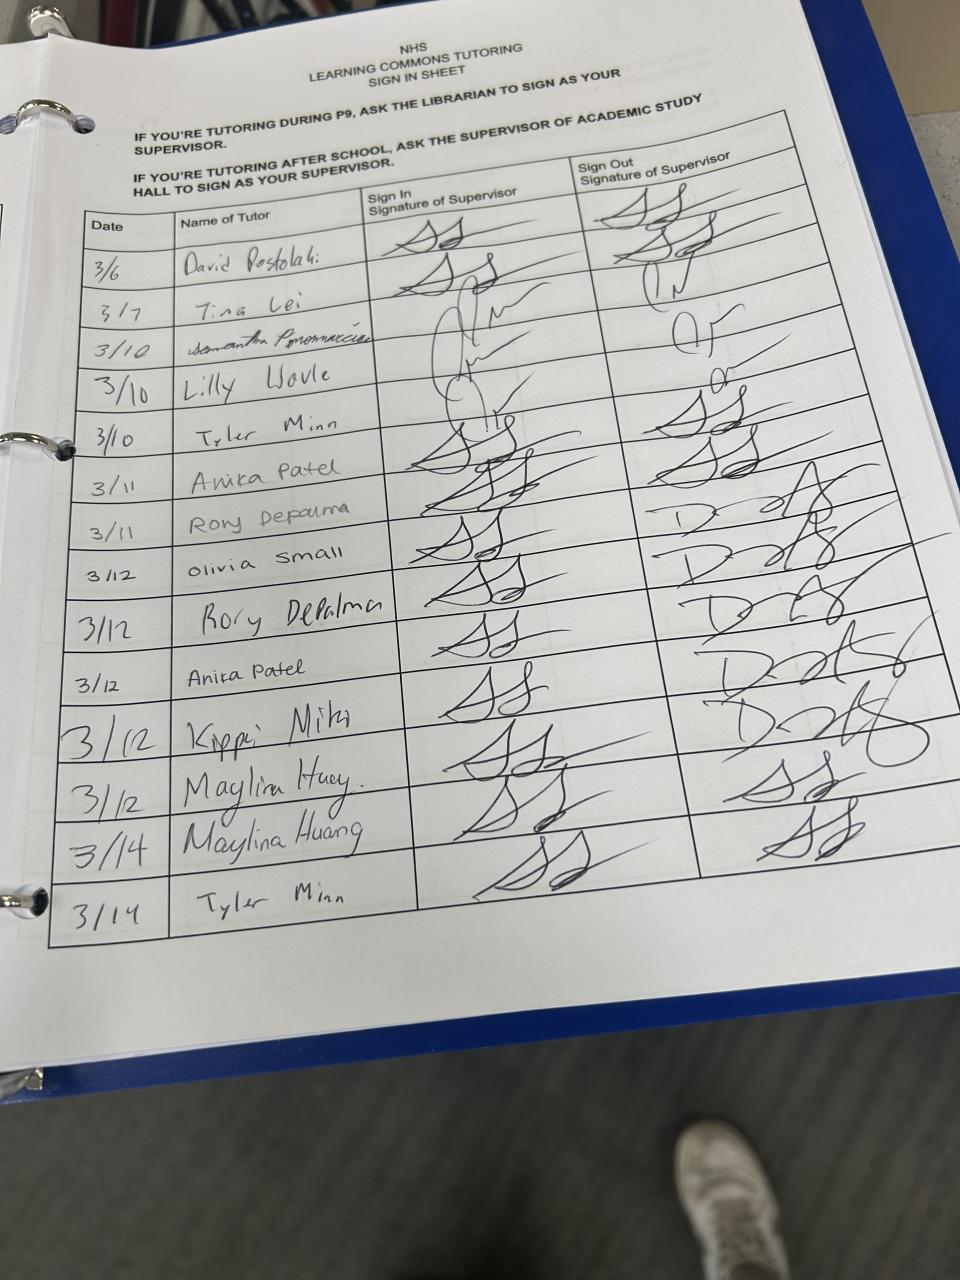 NHS
LEARNING COMMONS TUTORING
SIGN IN SHEET
IF YOU'RE TUTORING DURING P9, ASK THE LIBRARIAN TO SIGN AS YOUR
SUPERVISOR.
IF YOU'RE TUTORING AFTER SCHOOL, ASK THE SUPERVISOR OF ACADEMIC STUDY
HALL TO SIGN AS YOUR SUPERVISOR.
Date Name of Tutor Sign In Signature of Supervisor Sign Out Signature of Supervisor
3/6 David Postolaki
3/7 Tina Lei
3/10 Samantha
3/10 Lilly
3/10 Tyler Minn
3/11 Anika Patel
3/11 Rory Depalma
3/12 olivia small
3/12 Rory DePalma
3/12 Anika Patel
3/12 Kippei Miki
3/12 Maylina
3/14 Maylina Huang
3/14 Tyler Minn